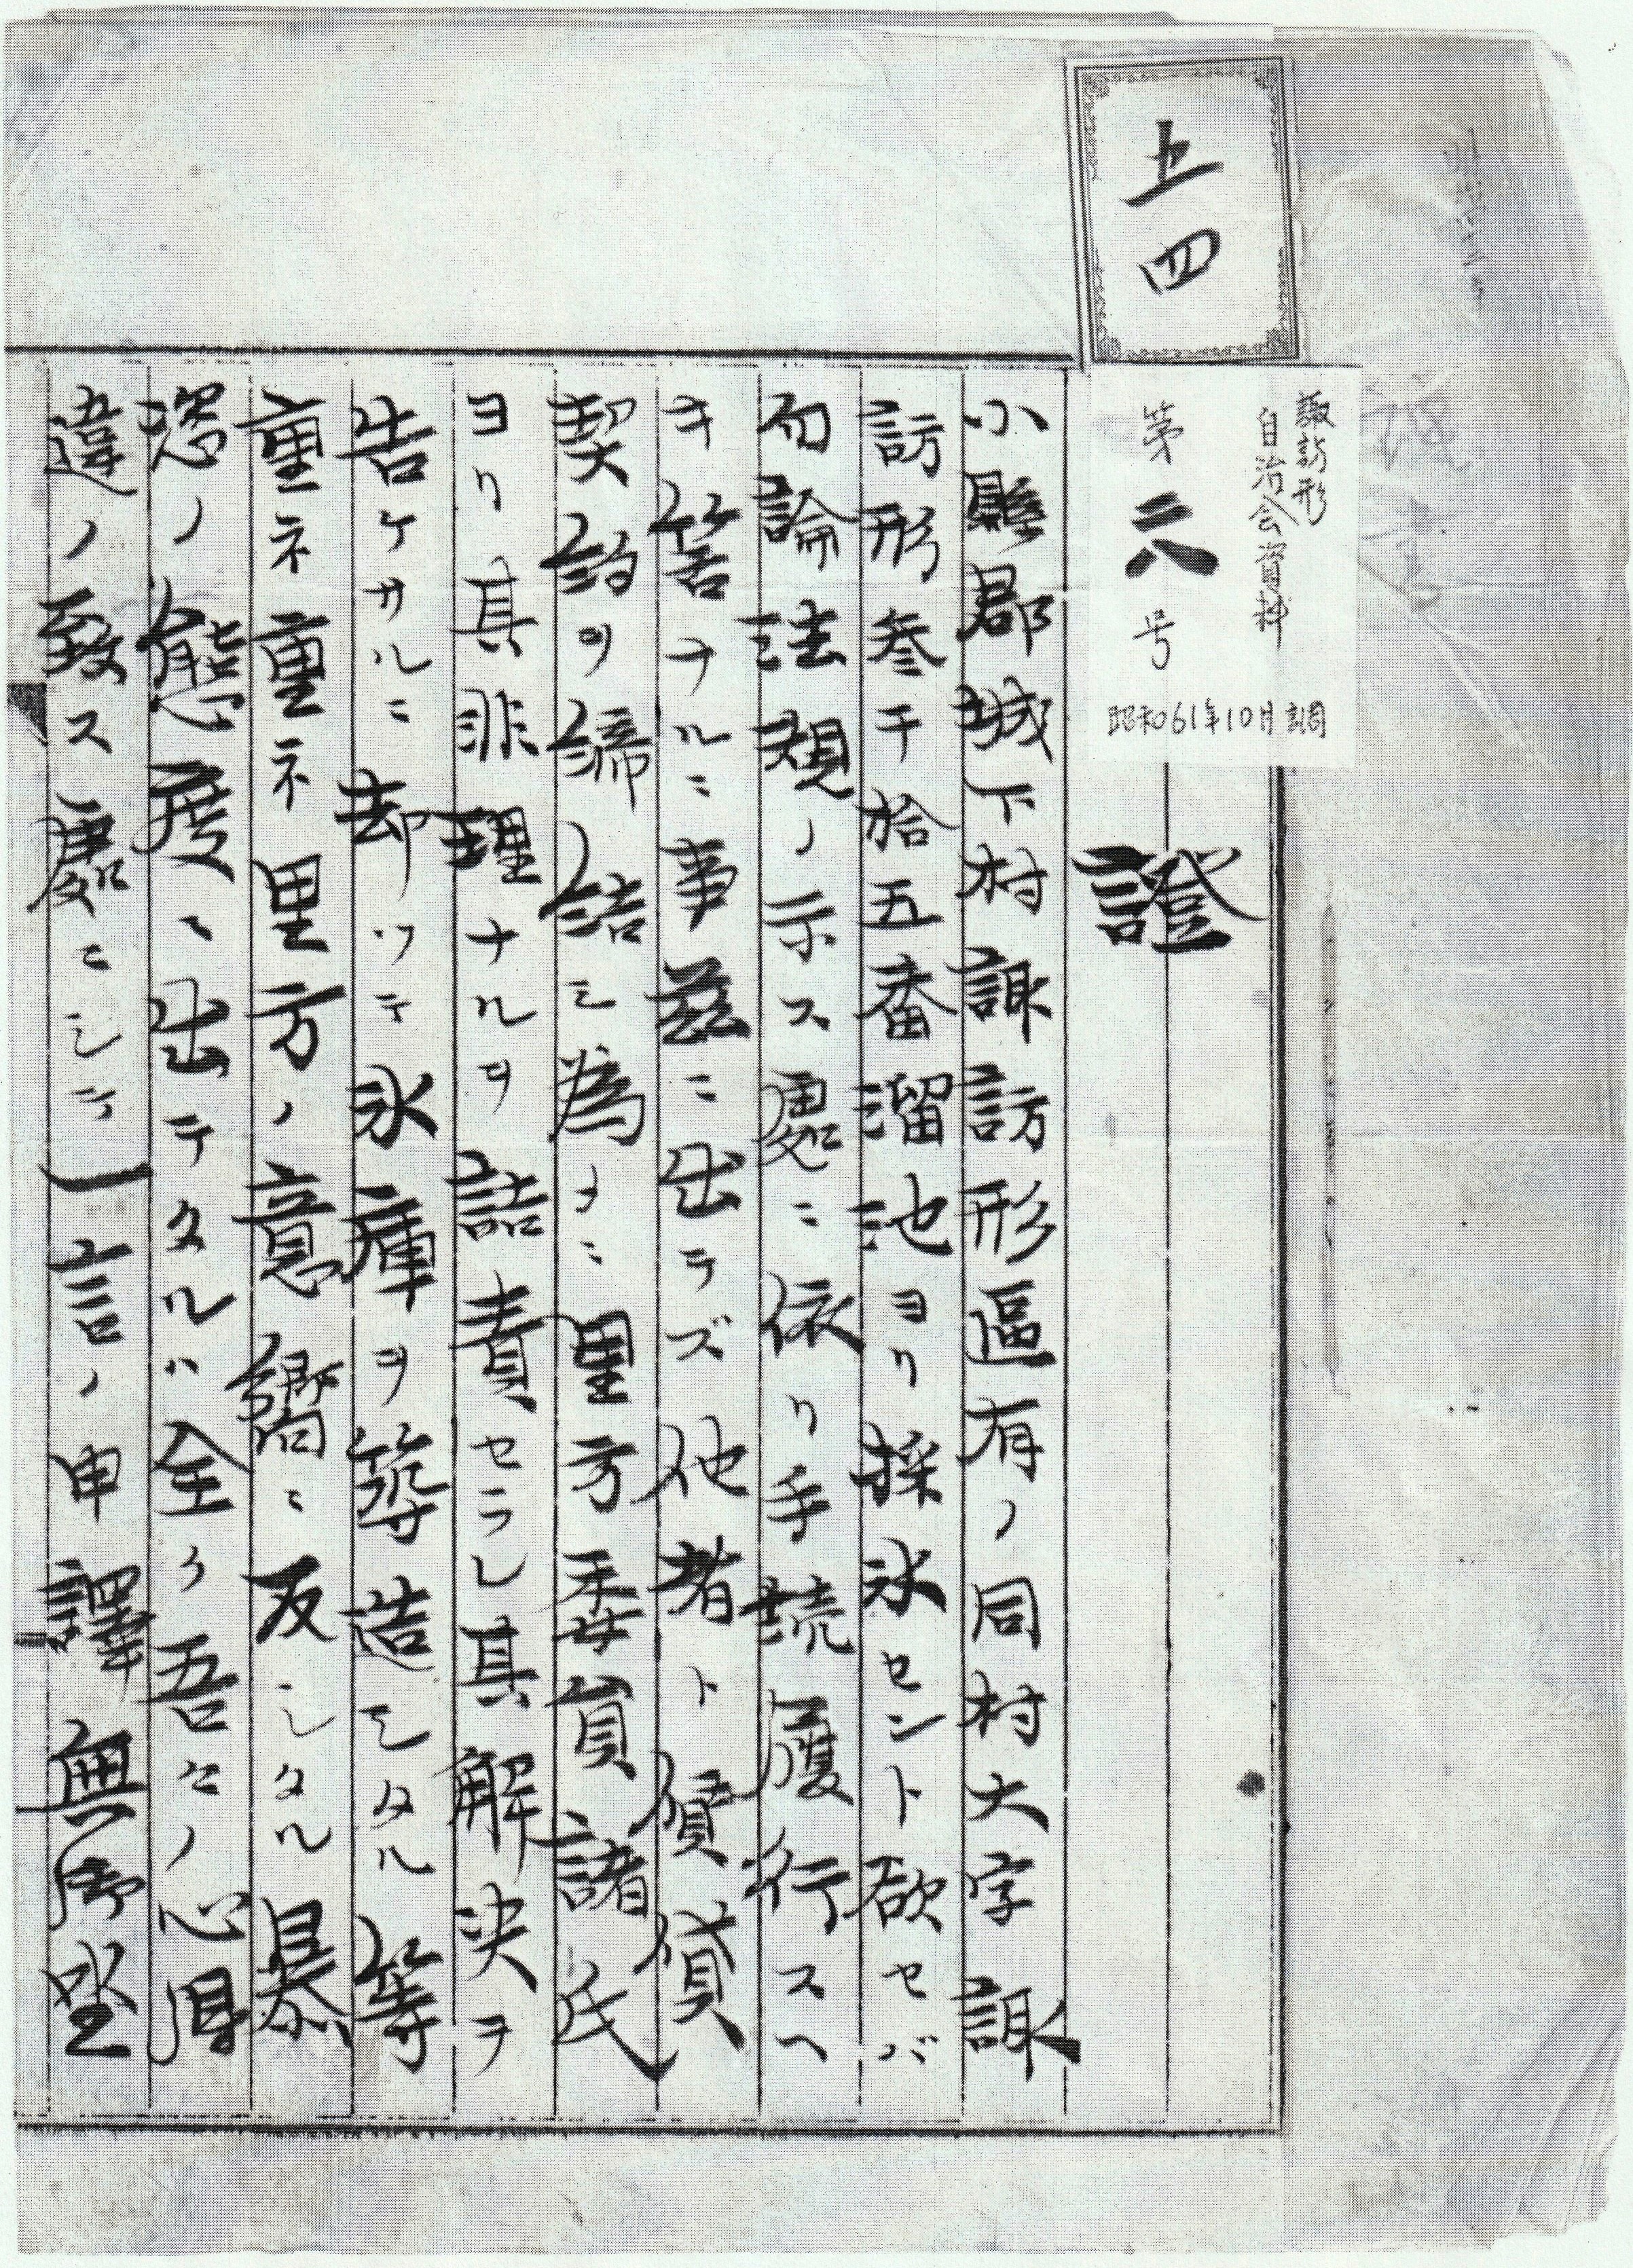 上四
諏訪形
自治会資料
第六号
昭和61年10月調
證
小縣郡城下村諏訪形區有ノ同村大字諏
訪形参千拾五番溜池ヨリ採氷セント欲セバ
勿論法規ノ示ス處ニ依リ手続履行スヘ
キ筈ナルニ事茲ニ出テズ他者ト債貸
契約ヲ締結シ為メニ里方委員諸氏
ヨリ其非理ナルヲ詰責セラレ其解決ヲ
告ケサルニ却ツテ氷庫ヲ築造シタル等
重ネ重ネ里方ノ意嚮ニ反シタル暴
恣ノ態度ニ出テタルハ全ク吾々ノ心得
違ノ致ス處ニシテ一言ノ申譯無御坐